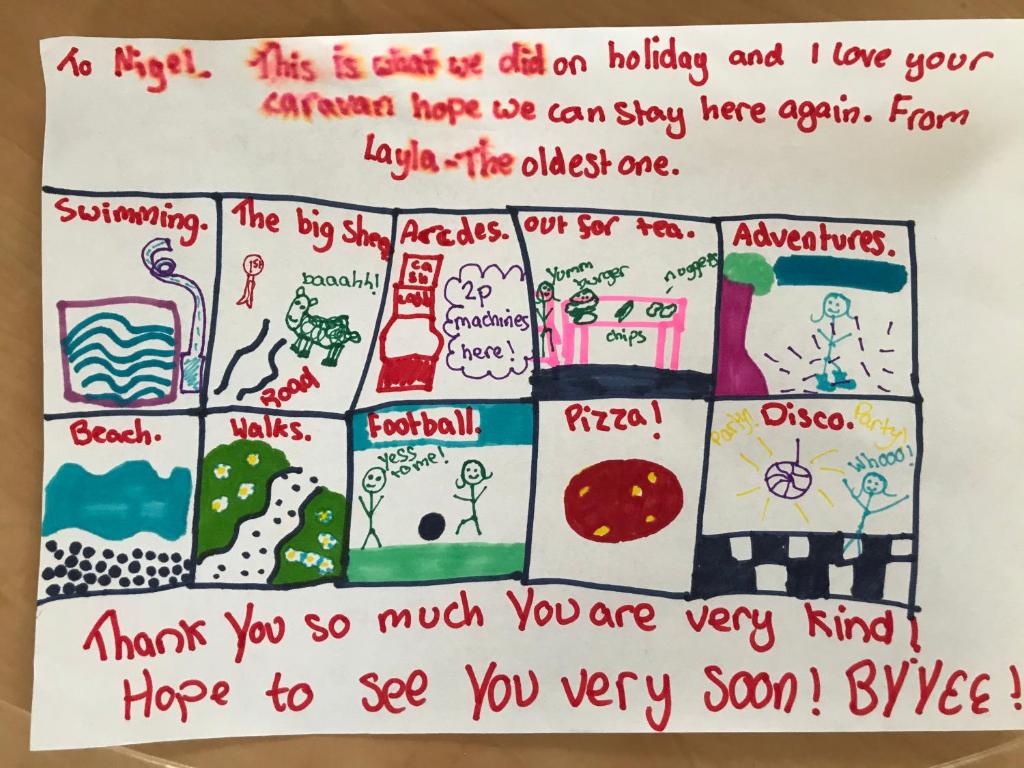 To Nigel. This is what we did on holiday and I love your
caravan hope we can stay here again. From
Layla-The oldest one.
Swimming.
The big sheep
1st
baaahh!
Road
Arcdes.
ca
sh
cash
2p
machines
here!
out for tea.
Yumm
burger
nuggets
chips
Adventures.
Beach.
Walks.
Football.
yess
to me!
Pizza!
Disco.
Party!
Party!
Whooo!
Thank You so much You are very kind!
Hope to see You very soon! BYYEE!